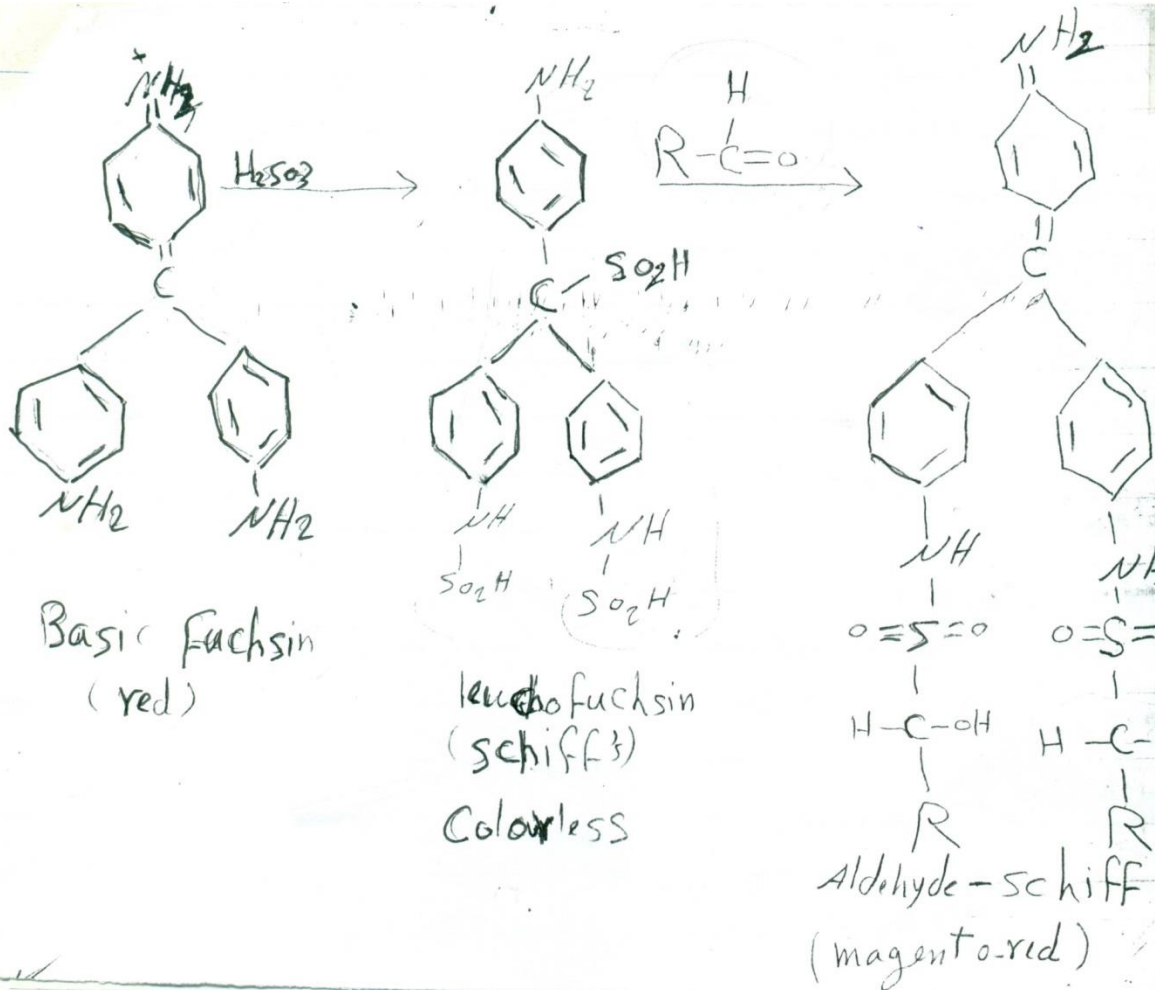 +
NH2
H2SO3
C
NH2
NH2
Basic fuchsin
(red)
NH2
C
SO2H
NH
SO2H
NH
SO2H
leucofuchsin
(schiff's)
Colourless
H
R-C=O
NH2
C
NH
O=S=O
H-C-OH
R
O=S=
H-C-
R
Aldehyde-schiff
(magento-red)